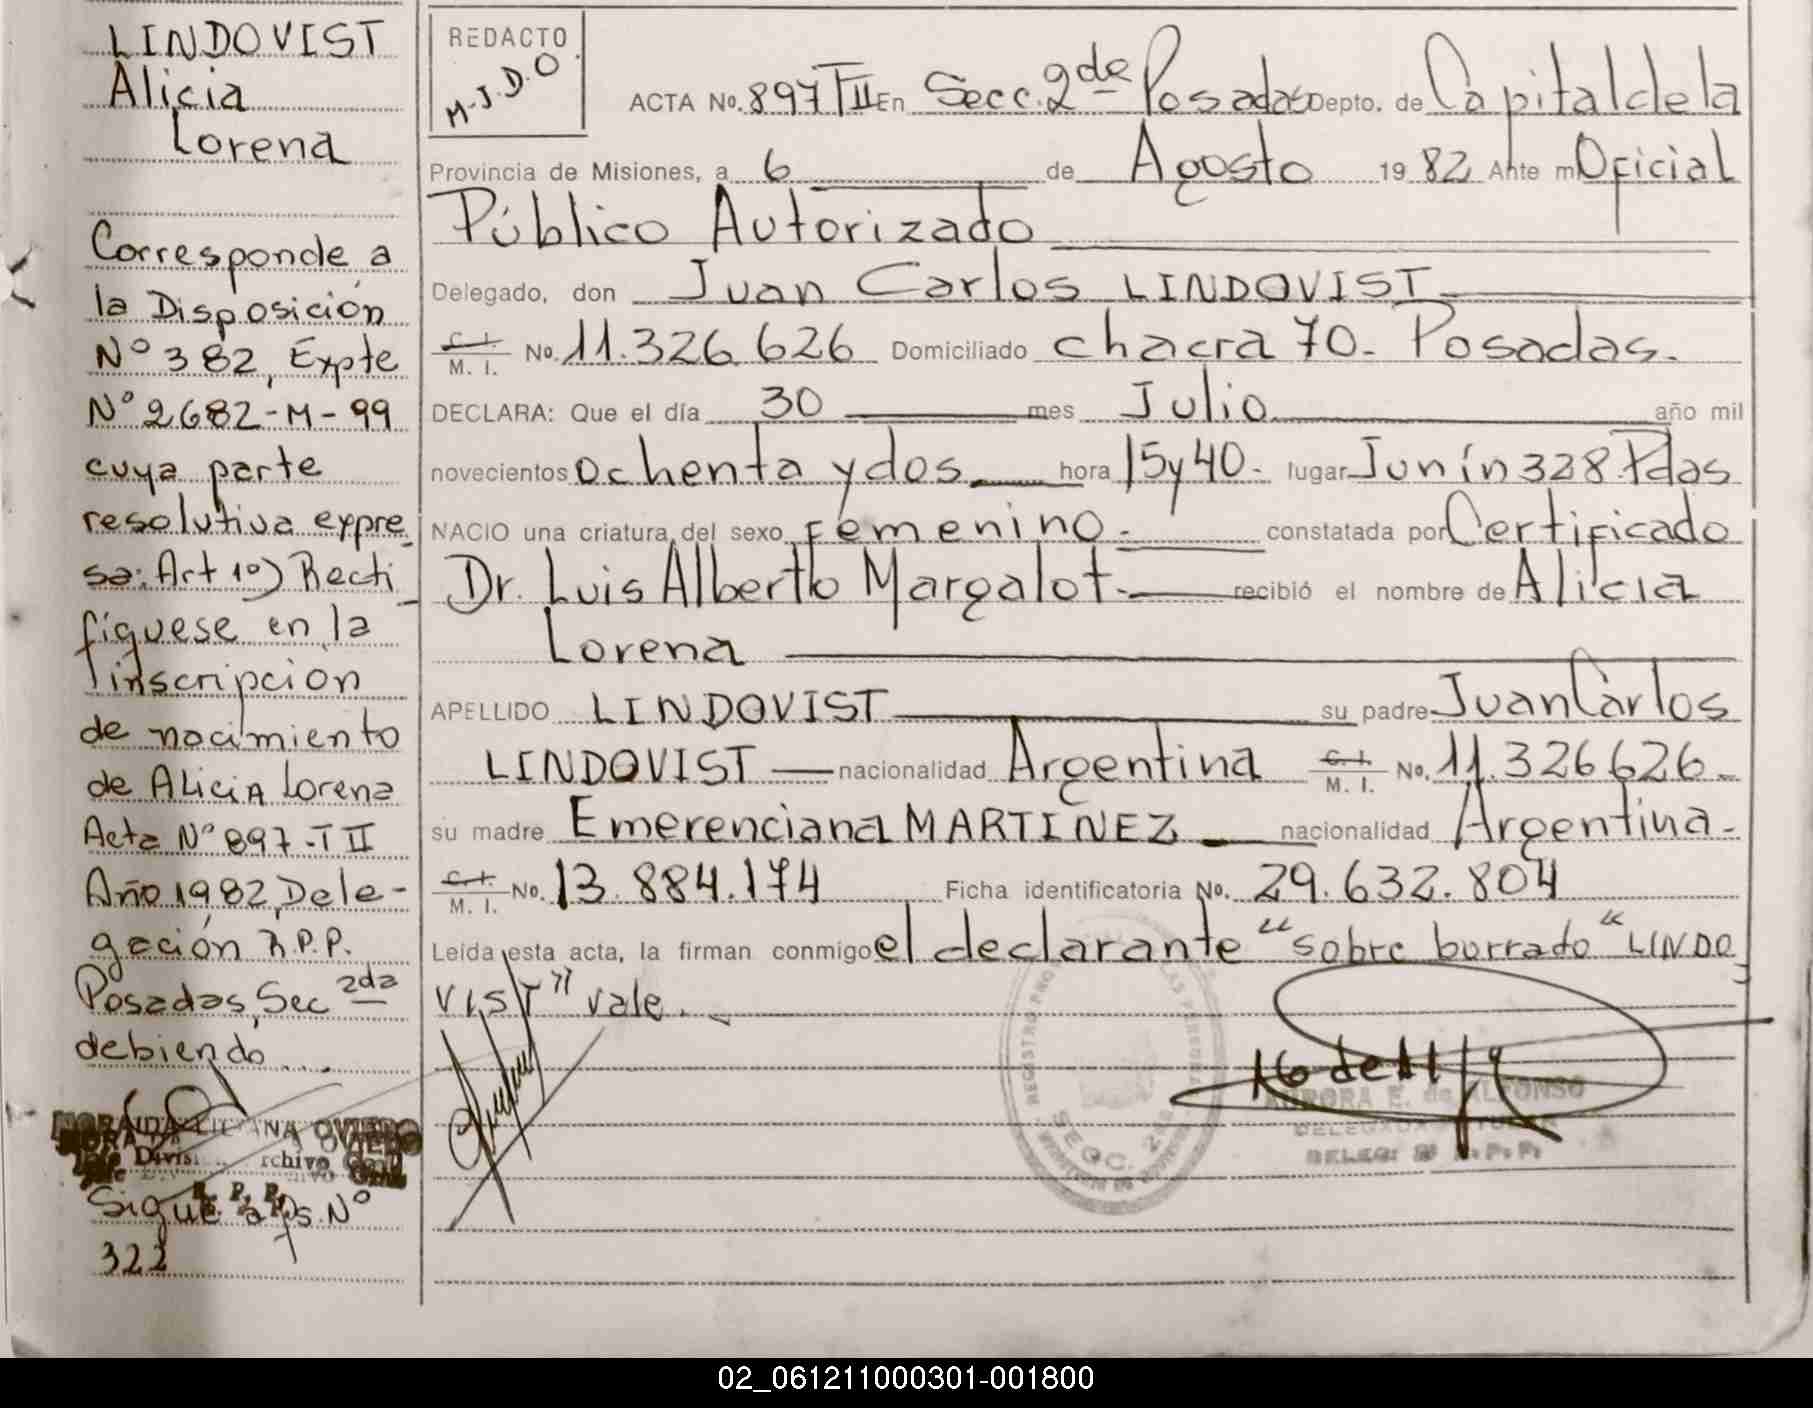 LINDOVIST
Alicia
Lorena
Corresponde a
la Disposición
Nº 382, Expte
Nº 2682-M-99
cuya parte
resolutiva expre
sa: Art 1º) Recti_
fíquese en la
inscripción
de nacimiento
de Alicia Lorena
Acta Nº 897-TII
Año 1982, Dele-
gación R.P.P.
Posadas, Sec 2da
debiendo....
MORAIDA LILIANA OVIEDO
Jefe Divis. Archivo Gral
R. P. P.
Sigue a fs. Nº
322
REDACTO
M.J.D.O.
ACTA No. 897 TII En Secc. 2da Posadas Depto. de Capital de la
Provincia de Misiones, a 6 de Agosto 1982 Ante mi Oficial
Público Autorizado
Delegado, don Juan Carlos LINDOVIST
C. I. M. I. No. 11.326.626 Domiciliado chacra 70.- Posadas.
DECLARA: Que el día 30 mes Julio año mil
novecientos ochenta y dos hora 15 y 40.- lugar Junín 328 Pdas
NACIO una criatura del sexo femenino.- constatada por Certificado
Dr. Luis Alberto Margalot.- recibió el nombre de Alicia
Lorena
APELLIDO LINDOVIST su padre Juan Carlos
LINDOVIST nacionalidad Argentina C. I. M. I. No. 11.326626.-
su madre Emerenciana MARTINEZ nacionalidad Argentina.-
C. I. M. I. No. 13.884.174 Ficha identificatoria No. 29.632.804
Leída esta acta, la firman conmigo el declarante "sobre borrado" "LINDO
VIST" vale.-
SECC. 2da
AURORA E. de ALFONSO
DELEGADA TITULAR
DELEG. 2ª R.P.P.
02_061211000301-001800